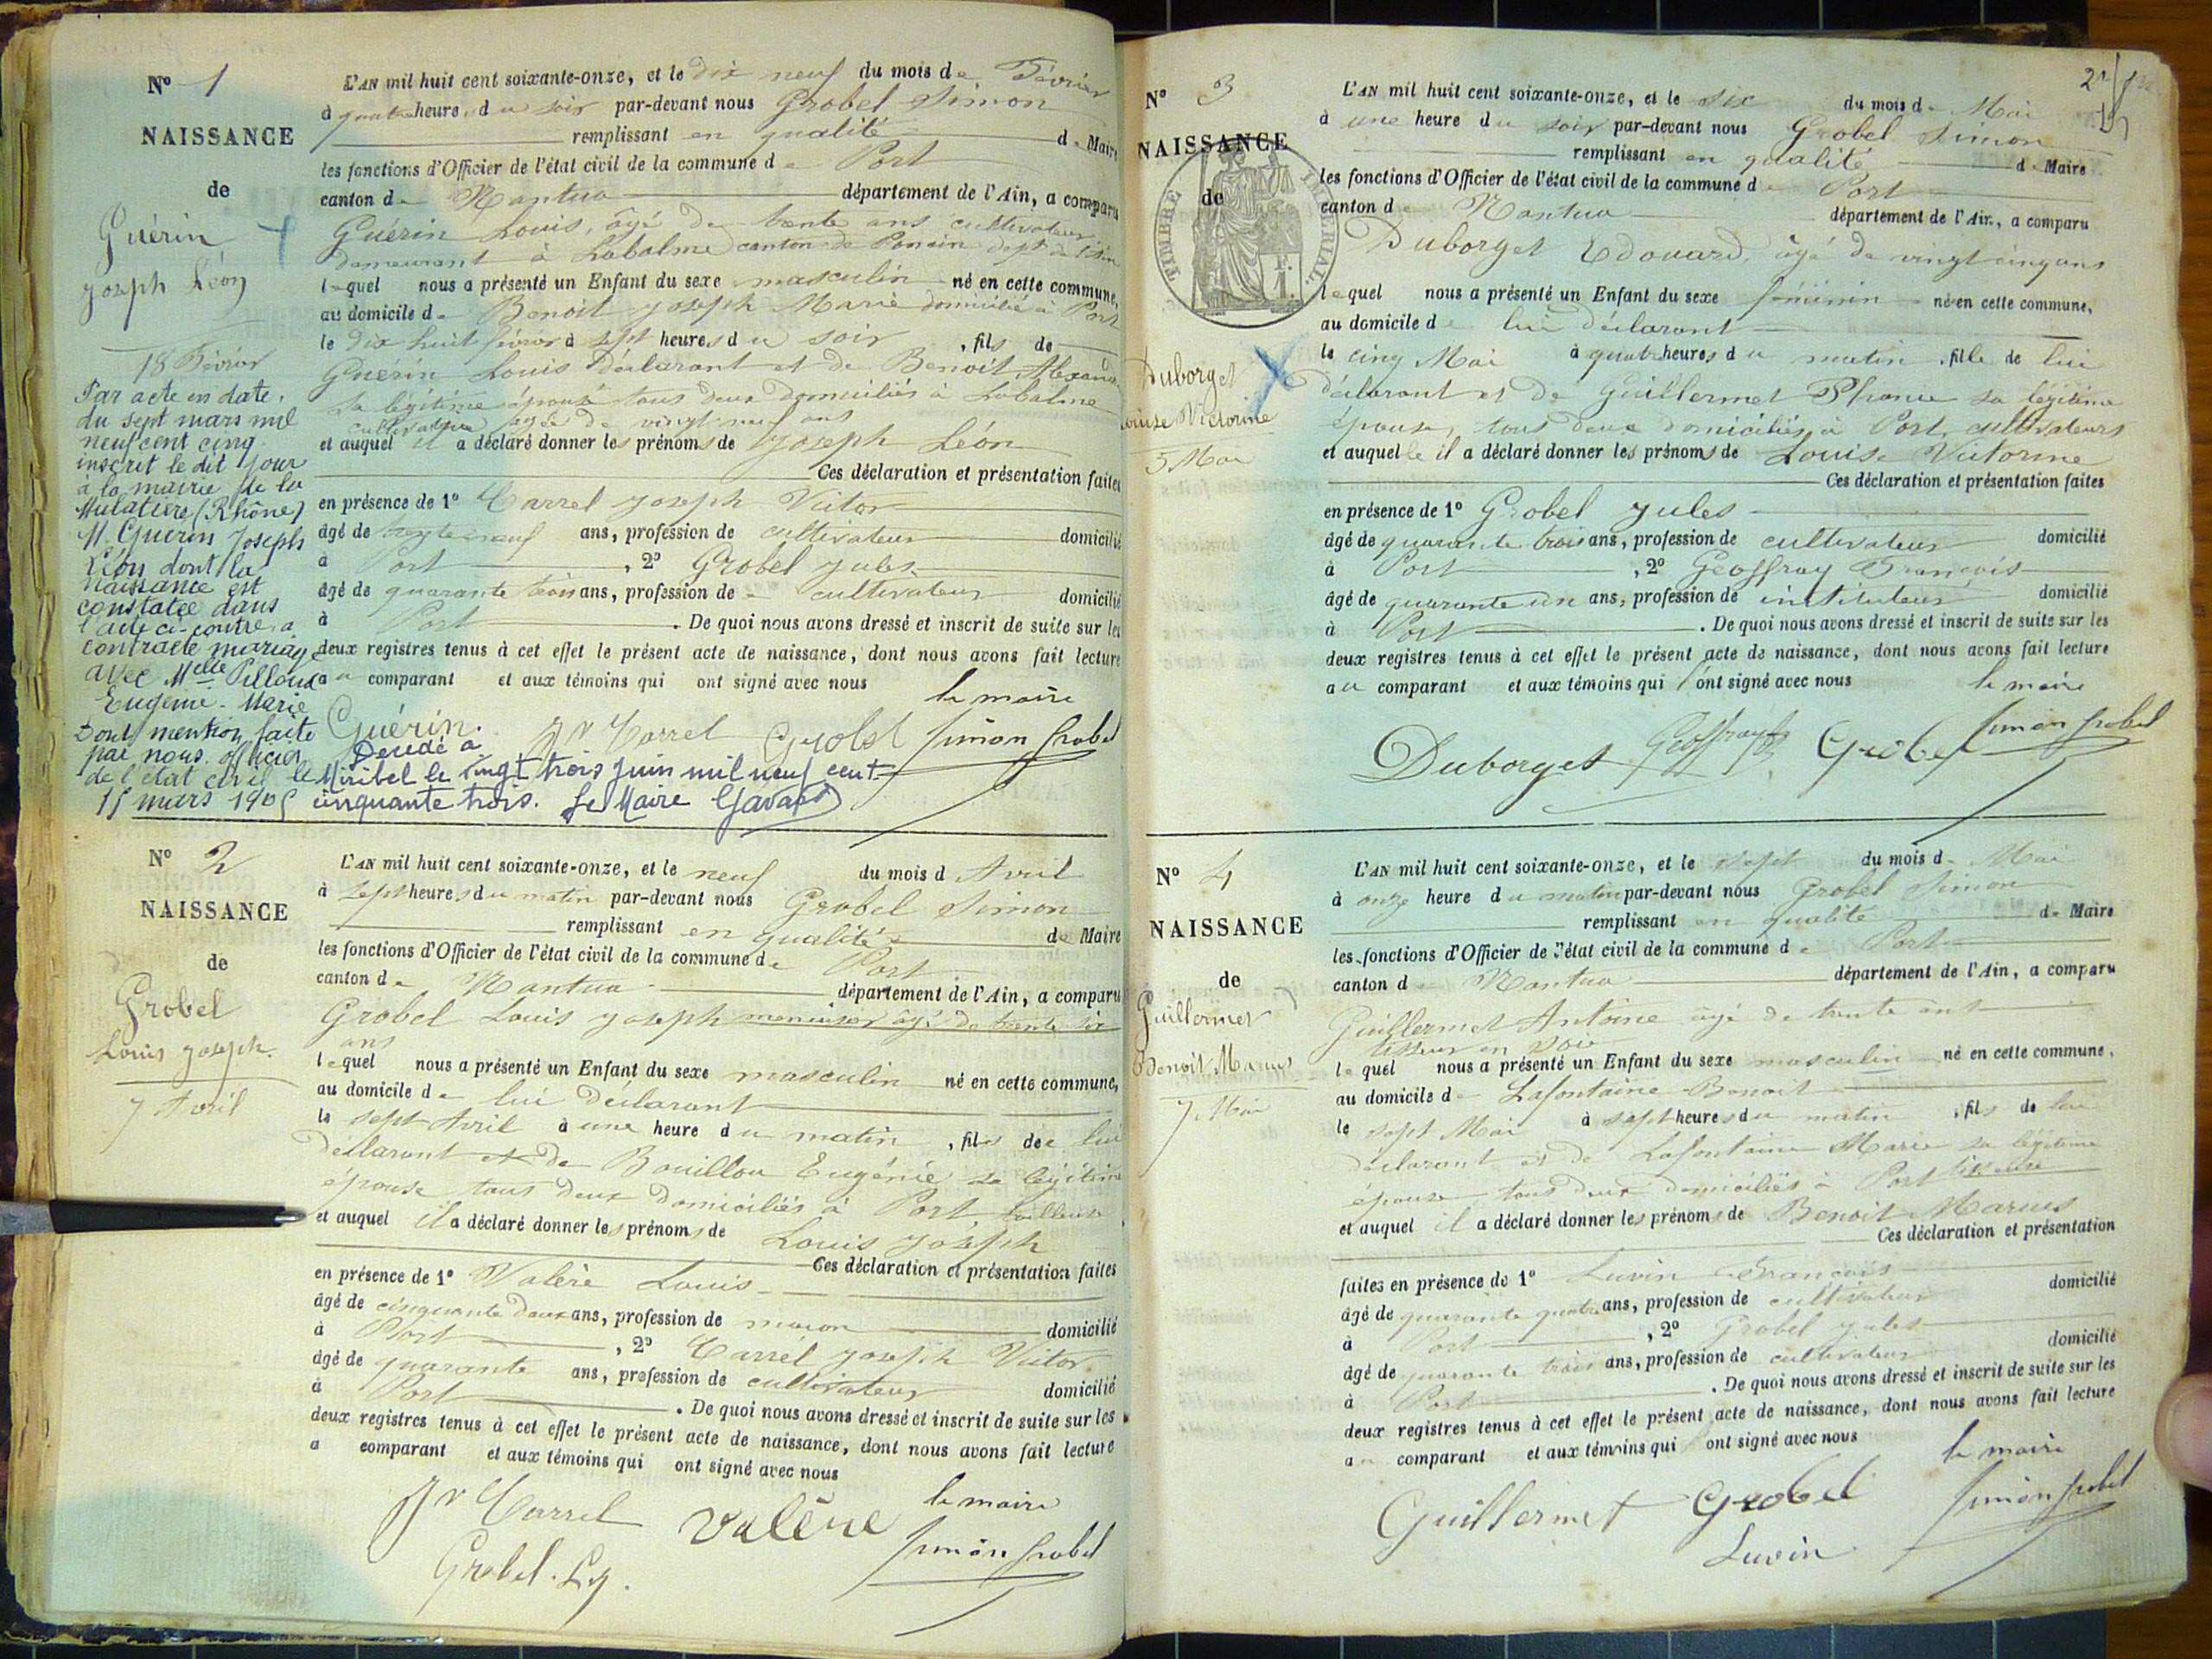 N° 1
NAISSANCE
de
Guérin
Joseph Léon
18 Février
Par acte en date,
du sept mars mil
neuf cent cinq
inscrit le dit jour
à la mairie de la
Mulatière (Rhône)
M. Guérin Joseph
Léon dont la
naissance est
constatée dans
l'acte ci-contre, a
contracté mariage
avec Melle Pilloux
Eugénie-Marie
Dont mention faite
par nous officier
de l'état civil le
15 mars 1905
L'AN mil huit cent soixante-onze, et le dix neuf du mois de Février
à quatre heures du soir par-devant nous Grobel Simon
remplissant en qualité de Maire
les fonctions d'Officier de l'état civil de la commune de Port
canton de Nantua département de l'Ain, a comparu
Guérin Louis, âgé de trente ans cultivateur
demeurant à Labalme canton de Poncin dépt de l'Ain
lequel nous a présenté un Enfant du sexe masculin né en cette commune,
au domicile de Benoit Joseph Marie domicilié à Port
le dix huit février à sept heures du soir, fils de
Guérin Louis déclarant et de Benoit
sa légitime épouse tous deux domiciliés à Labalme
cultivatrice âgée de vingt neuf ans
et auquel il a déclaré donner les prénoms de Joseph Léon
Ces déclaration et présentation faites
en présence de 1° Carrel Joseph Victor
âgé de ans, profession de cultivateur domicilié
à Port, 2° Grobel Jules
âgé de quarante trois ans, profession de cultivateur domicilié
à Port. De quoi nous avons dressé et inscrit de suite sur les
deux registres tenus à cet effet le présent acte de naissance, dont nous avons fait lecture
au comparant et aux témoins qui ont signé avec nous
le maire
Guérin. Jh Carrel Grobel Simon Grobel
Décédé à
Miribel le vingt trois juin mil neuf cent
cinquante trois. Le Maire
N° 2
NAISSANCE
de
Grobel
Louis Joseph.
7 Avril
L'AN mil huit cent soixante-onze, et le neuf du mois d Avril
à sept heures du matin par-devant nous Grobel Simon
remplissant en qualité de Maire
les fonctions d'Officier de l'état civil de la commune de Port
canton de Nantua département de l'Ain, a comparu
Grobel Louis Joseph menuisier âgé de trente six
ans
lequel nous a présenté un Enfant du sexe masculin né en cette commune,
au domicile de lui déclarant
le sept Avril à une heure du matin, fils de lui
déclarant et de Bouillou Eugénie sa légitime
épouse tous deux domiciliés à Port, tailleuse
et auquel il a déclaré donner les prénoms de Louis Joseph
Ces déclaration et présentation faites
en présence de 1° Valère Louis
âgé de cinquante deux ans, profession de maçon domicilié
à Port, 2° Carrel Joseph Victor
âgé de quarante ans, profession de cultivateur domicilié
à Port. De quoi nous avons dressé et inscrit de suite sur les
deux registres tenus à cet effet le présent acte de naissance, dont nous avons fait lecture
a comparant et aux témoins qui ont signé avec nous
Jh Carrel Valère le maire
Grobel. L.J. Simon Grobel
N° 3
NAISSANCE
de
TIMBRE IMPÉRIAL
Duborget
Louise Victorine
5 Mai
L'AN mil huit cent soixante-onze, et le six du mois de Mai
à une heure du soir par-devant nous Grobel Simon
remplissant en qualité de Maire
les fonctions d'Officier de l'état civil de la commune de Port
canton de Nantua département de l'Ain, a comparu
Duborget Edouard, âgé de vingt cinq ans
lequel nous a présenté un Enfant du sexe féminin né en cette commune,
au domicile de lui déclarant
le cinq Mai à quatre heures du matin, fille de lui
déclarant et de Guillermet sa légitime
épouse, tous deux domiciliés à Port, cultivateurs
et auquelle il a déclaré donner les prénoms de Louise Victorine
Ces déclaration et présentation faites
en présence de 1° Grobel Jules
âgé de quarante trois ans, profession de cultivateur domicilié
à Port, 2° Geoffray François
âgé de quarante un ans, profession de instituteur domicilié
à Port. De quoi nous avons dressé et inscrit de suite sur les
deux registres tenus à cet effet le présent acte de naissance, dont nous avons fait lecture
au comparant et aux témoins qui ont signé avec nous
le maire
Duborget Geoffray Grobel Simon Grobel
N° 4
NAISSANCE
de
Guillermet
Benoit Marius
7 Mai
L'AN mil huit cent soixante-onze, et le sept du mois de Mai
à onze heure du matin par-devant nous Grobel Simon
remplissant en qualité de Maire
les fonctions d'Officier de l'état civil de la commune de Port
canton de Nantua département de l'Ain, a comparu
Guillermet Antoine âgé de trente ans
tisseur en soie
lequel nous a présenté un Enfant du sexe masculin né en cette commune,
au domicile de Lafontaine Benoit
le sept Mai à sept heures du matin, fils de lui
déclarant et de Lafontaine Marie sa légitime
épouse tous deux domiciliés à Port tisseuse
et auquel il a déclaré donner les prénoms de Benoit Marius
Ces déclaration et présentation
faites en présence de 1° Luvin François
âgé de quarante quatre ans, profession de cultivateur domicilié
à Port, 2° Grobel Jules
âgé de quarante trois ans, profession de cultivateur domicilié
à Port. De quoi nous avons dressé et inscrit de suite sur les
deux registres tenus à cet effet le présent acte de naissance, dont nous avons fait lecture
au comparant et aux témoins qui ont signé avec nous
le maire
Guillermet Grobel Simon Grobel
Luvin